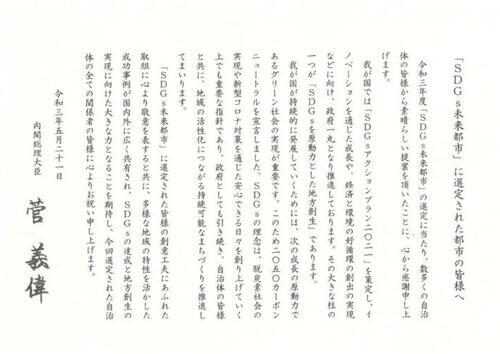 「ＳＤＧｓ未来都市」に選定された都市の皆様へ
令和三年度「ＳＤＧｓ未来都市」の選定に当たり、数多くの自治
体の皆様から素晴らしい提案を頂いたことに、心から感謝申し上
げます。
我が国では「ＳＤＧｓアクションプラン二〇二一」を策定し、イ
ノベーションを通じた成長や、経済と環境の好循環の創出の実現
などに向け、政府一丸となり推進しております。その大きな柱の
一つが「ＳＤＧｓを原動力とした地方創生」であります。
我が国が持続的に発展していくためには、次の成長の原動力で
あるグリーン社会の実現が重要です。このため二〇五〇カーボン
ニュートラルを宣言しました。ＳＤＧｓの理念は、脱炭素社会の
実現や新型コロナ対策を通じた安心できる日々を創り上げていく
上でも重要な指針であり、政府としても引き続き、自治体の皆様
と共に、地域の活性化につながる持続可能なまちづくりを推進し
てまいります。
「ＳＤＧｓ未来都市」に選定された皆様の創意工夫にあふれた
取組に心より敬意を表すると共に、多様な地域の特性を活かした
成功事例が国内外に広く共有され、ＳＤＧｓの達成と地方創生の
実現に向けた大きな力となることを期待し、今回選定された自治
体の全ての関係者の皆様に心よりお祝い申し上げます。
令和三年五月二十一日
内閣総理大臣
菅 義偉